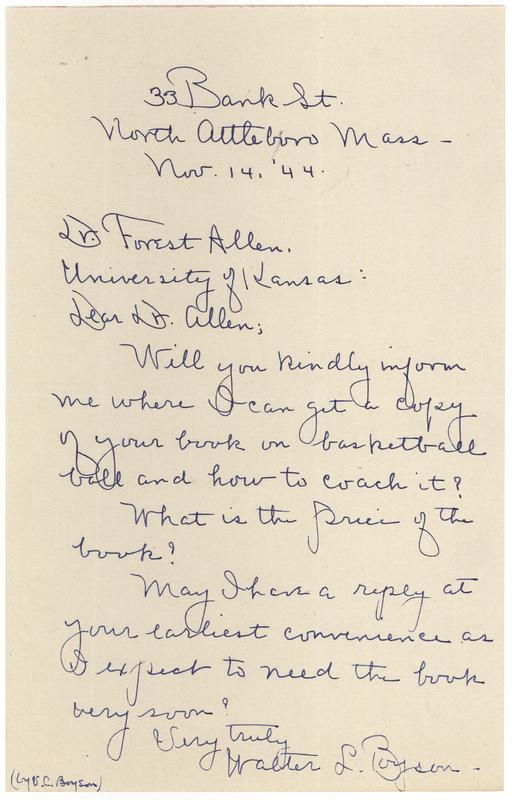 33 Bank St.
North Attleboro Mass -
Nov. 14. '44.
Dr. Forest Allen.
University of Kansas:
Dear Dr. Allen;
Will you kindly inform
me where I can get a copy
of your book on basketball
ball and how to coach it?
What is the price of the
book?
May I have a reply at
your earliest convenience as
I expect to need the book
very soon?
Very truly
Walter L. Boyson -
Boyson)